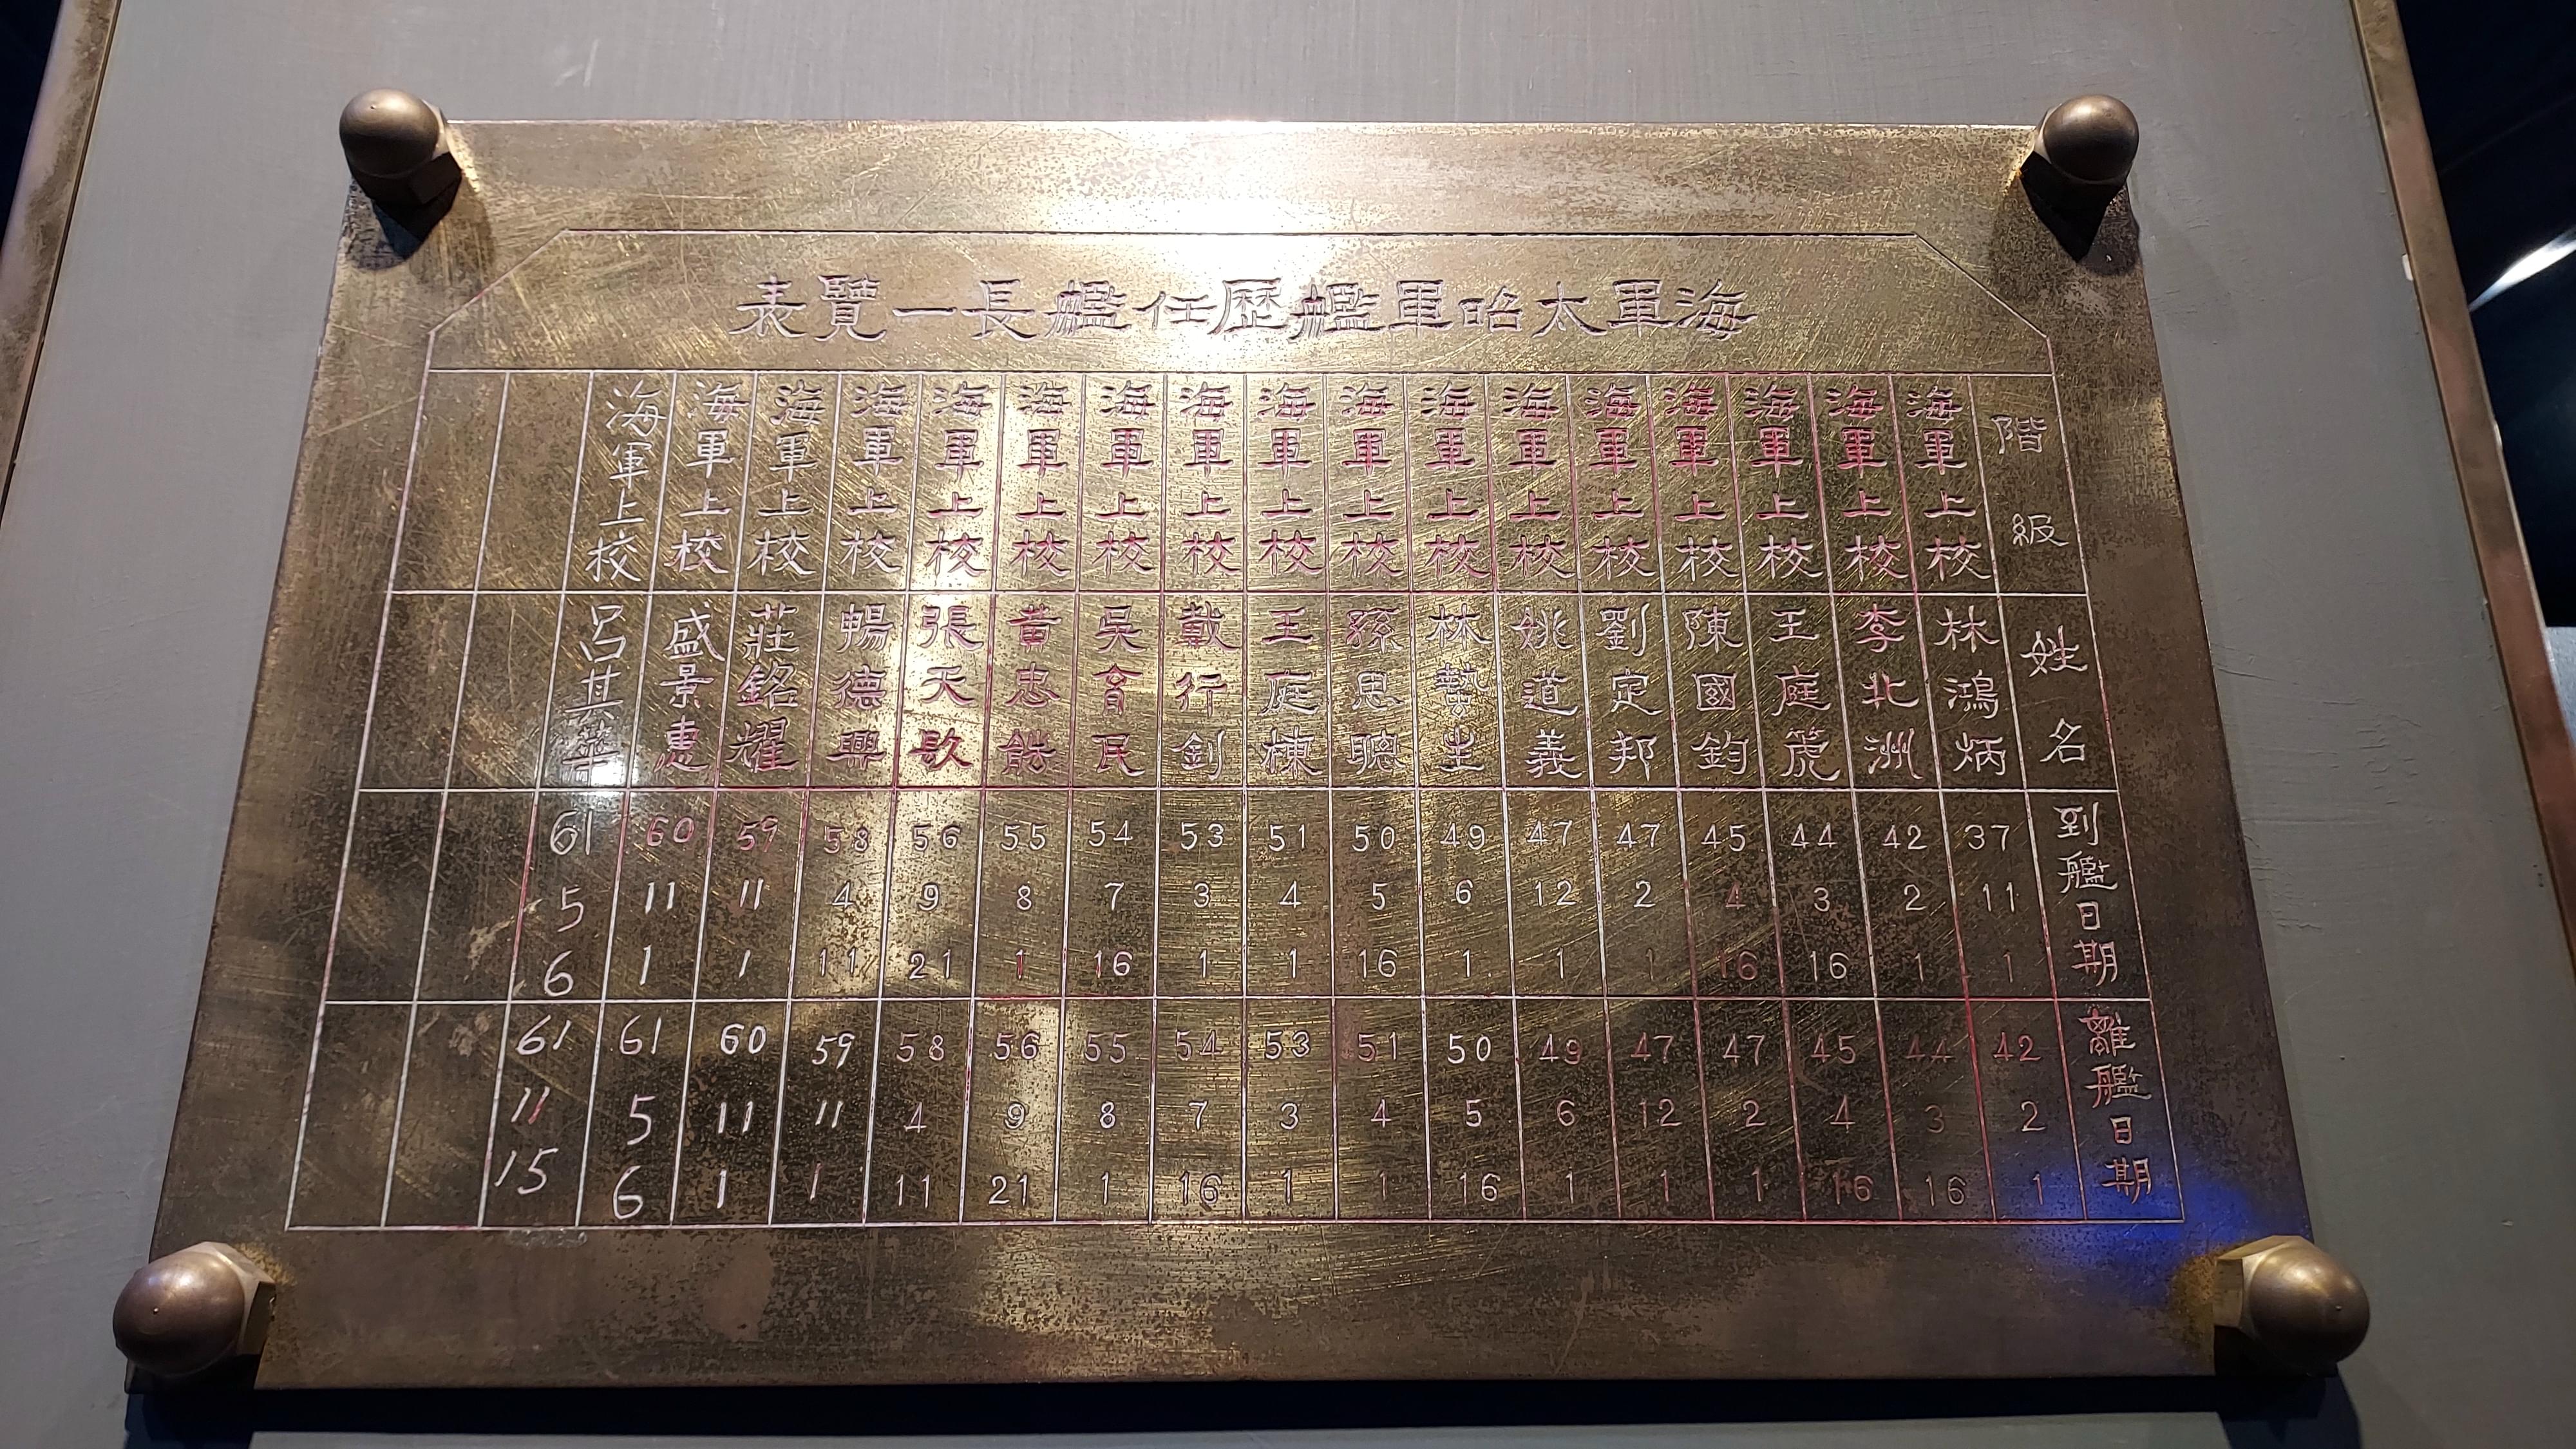 海軍太昭軍艦歷任艦長一覽表
階級 姓名 到艦日期 離艦日期
海軍上校 林鴻炳 37 11 1 42 2 1
海軍上校 李北洲 42 2 1 44 3 16
海軍上校 王庭箎 44 3 16 45 4 16
海軍上校 陳國鈞 45 4 16 47 2 1
海軍上校 劉定邦 47 2 1 47 12 1
海軍上校 姚道義 47 12 1 49 6 1
海軍上校 林蟄生 49 6 1 50 5 16
海軍上校 孫思聰 50 5 16 51 4 1
海軍上校 王庭棟 51 4 1 53 3 1
海軍上校 戴行釗 53 3 1 54 7 16
海軍上校 吳育民 54 7 16 55 8 1
海軍上校 黃忠能 55 8 1 56 9 21
海軍上校 張天 56 9 21 58 4 11
海軍上校 暢德興 58 4 11 59 11 1
海軍上校 莊銘耀 59 11 1 60 11 1
海軍上校 盛景惠 60 11 1 61 5 6
海軍上校 呂其華 61 5 6 61 11 15